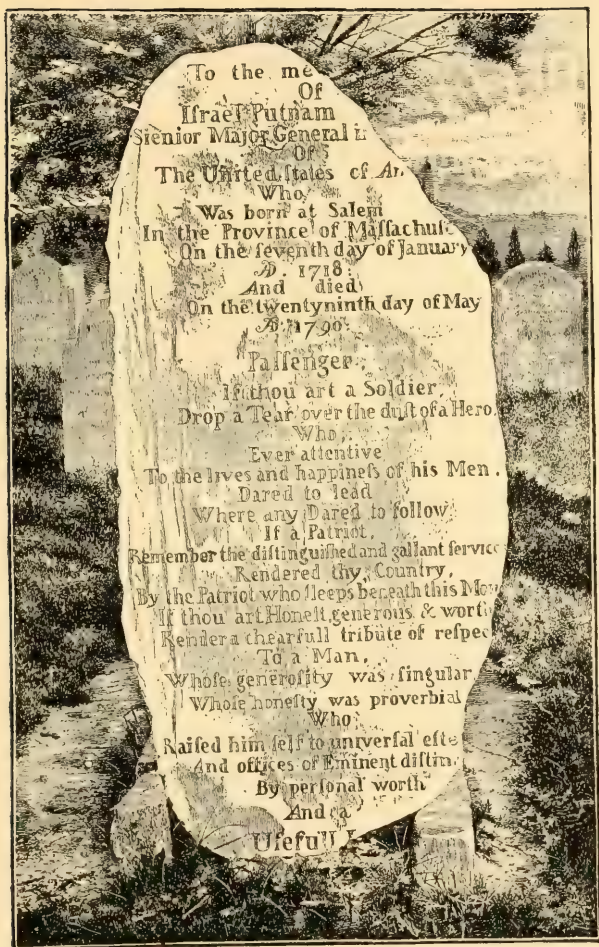 To the me
Of
Iſrael Putnam
Sienior Major General i
Of
The United ſtates of Am
Who
Was born at Salem
In the Province of Maſſachuſ
On the ſeventh day of January
AD. 1718.
And died
On the twentyninth day of May
AD. 1790.
Paſſenger
If thou art a Soldier
Drop a Tear over the duſt of a Hero.
Who,
Ever attentive
To the lives and happineſs of his Men.
Dared to lead
Where any Dared to follow
If a Patriot,
Remember the diſtinguiſhed and gallant ſervice
Rendered thy Country,
By the Patriot who ſleeps beneath this Mo
If thou art Honeſt, generous & wort
Render a chearfull tribute of reſpec
To a Man,
Whoſe generoſity was ſingular
Whoſe honeſty was proverbial
Who
Raiſed him ſelf to univerſal eſte
And offices of Eminent diſtin
By perſonal worth
And a
Uſefull